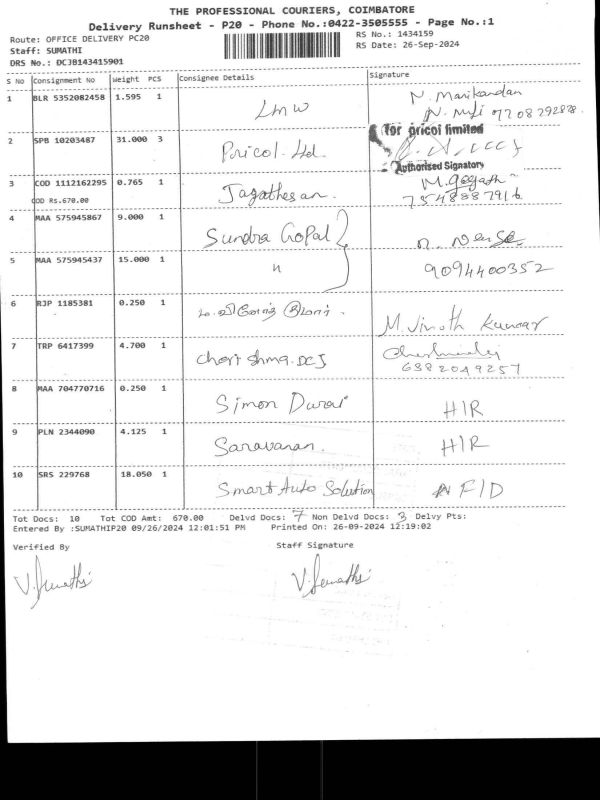 THE PROFESSIONAL COURIERS, COIMBATORE
Delivery Runsheet - P20 - Phone No.:0422-3505555 - Page No.:1
Route: OFFICE DELIVERY PC20
RS No.: 1434159
Staff: SUMATHI
RS Date: 26-Sep-2024
DRS No.: DCJB143415901
S No Consignment No Weight PCS Consignee Details Signature
1 BLR 5352082458 1.595 1 LMW N. Manikandan
N. 7708292878.
2 SPB 10203487 31.000 3 Pricol Ltd. for pricol limited
Authorised Signatory
3 COD 1112162295 0.765 1 Jagathesan. M.
COD Rs.670.00 7548887916
4 MAA 575945867 9.000 1 Sundra Gopal
5 MAA 575945437 15.000 1 " 9094400352
6 RJP 1185381 0.250 1 M. Vinoth Kumar
7 TRP 6417399 4.700 1 Cherishma. DCJ
6382049257
8 MAA 704770716 0.250 1 Simon Durai H/R
9 PLN 2344090 4.125 1 Saravanan. H/R
10 SRS 229768 18.050 1 Smart Auto Solution F/D
Tot Docs: 10 Tot COD Amt: 670.00 Delvd Docs: 7 Non Delvd Docs: 3 Delvy Pts:
Entered By :SUMATHIP20 09/26/2024 12:01:51 PM Printed On: 26-09-2024 12:19:02
Verified By Staff Signature
V. Sumathi V. Sumathi